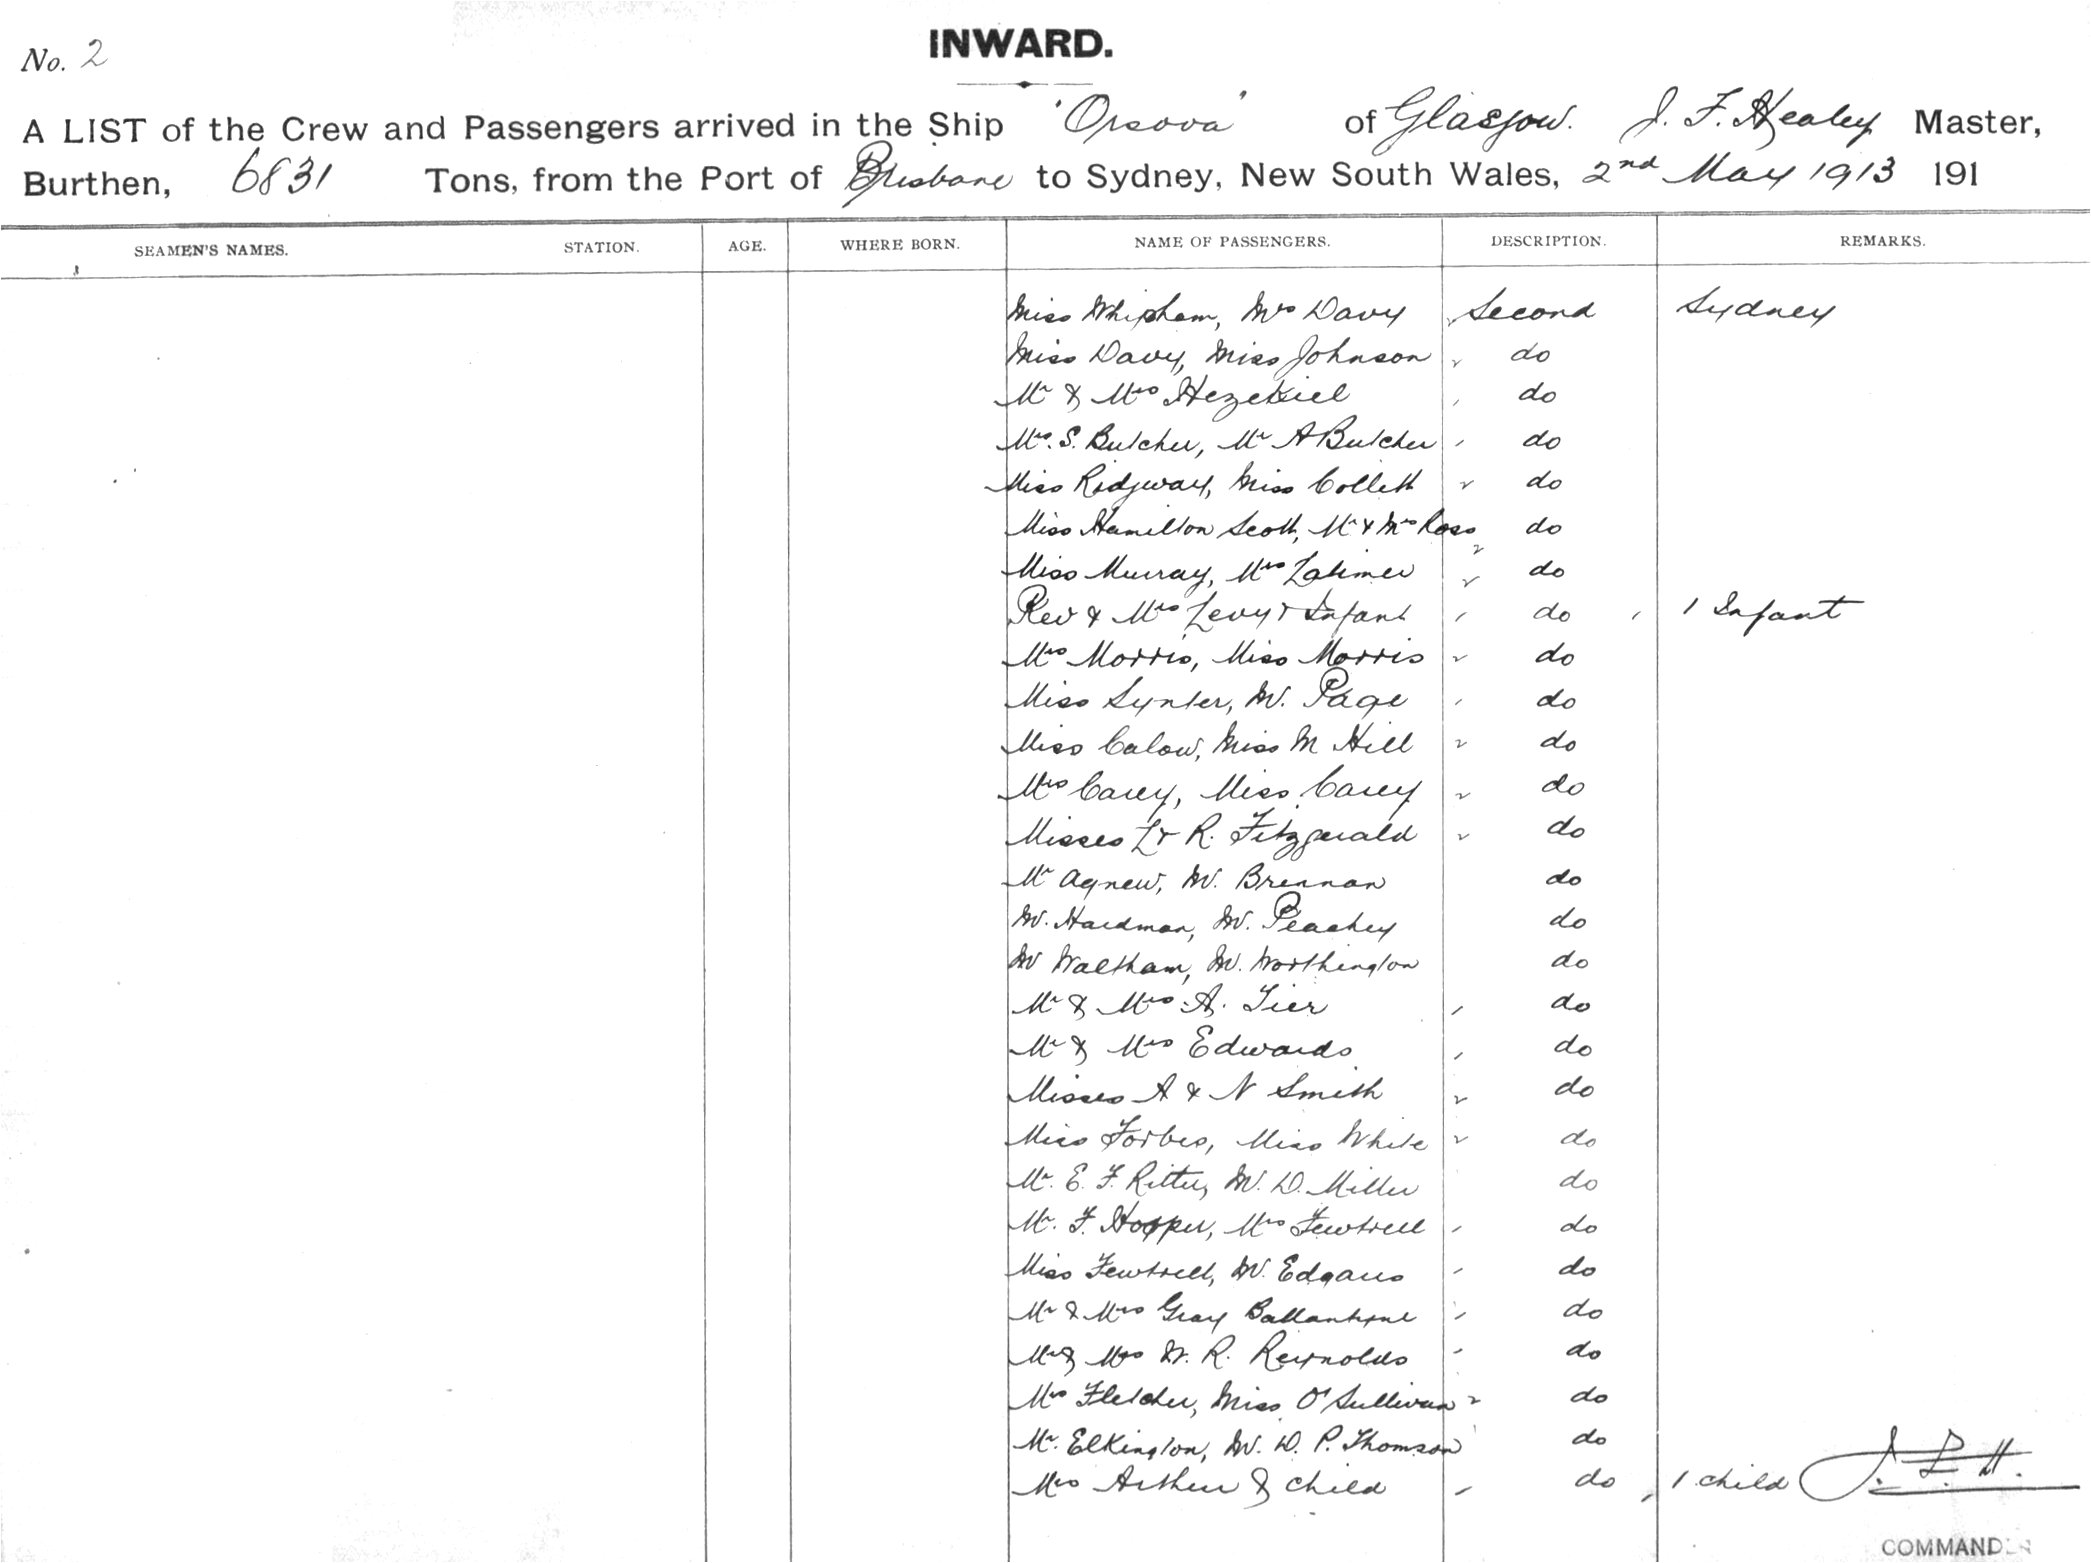 No. 2
INWARD.
A LIST of the Crew and Passengers arrived in the Ship 'Orsova' of Glasgow. J. F. Healey Master,
Burthen, 6831 Tons, from the Port of Brisbane to Sydney, New South Wales, 2nd May 1913 191
SEAMEN'S NAMES. STATION. AGE. WHERE BORN. NAME OF PASSENGERS. DESCRIPTION. REMARKS.
Miss Whipham, Mrs Davy Second Sydney
Miss Davy, Miss Johnson do
Mr & Mrs Hezekiel do
Mrs. S. Butcher, Mr A Butcher do
Miss Ridgway, Miss Collett do
Miss Hamilton Scott, Mr & Mrs Ross do
Miss Murray, Mrs Latimer do
Rev & Mrs Levy & Infant do 1 Infant
Mrs Morris, Miss Morris do
Miss Synter, Mr. Page do
Miss Calow, Miss M Hill do
Mrs Carey, Miss Carey do
Misses L & R. Fitzgerald do
Mr Agnew, Mr. Brennan do
Mr. Hardman, Mr. Peachey do
Mr Waltham, Mr. Worthington do
Mr & Mrs A. Tier do
Mr & Mrs Edwards do
Misses A & N Smith do
Miss Forbes, Miss White do
Mr. E. F. Ritter, Mr. D. Miller do
Mr. F. Hopper, Mrs Fewtrell do
Miss Fewtrell, Mr. Edgar do
Mr & Mrs Gray Ballantyne do
Mr & Mrs W. R. Reynolds do
Mrs Fletcher, Miss O'Sullivan do
Mr. Elkington, Mr. D. P. Thomson do
Mrs Arthur & child do 1 child J. F. H.
COMMANDER